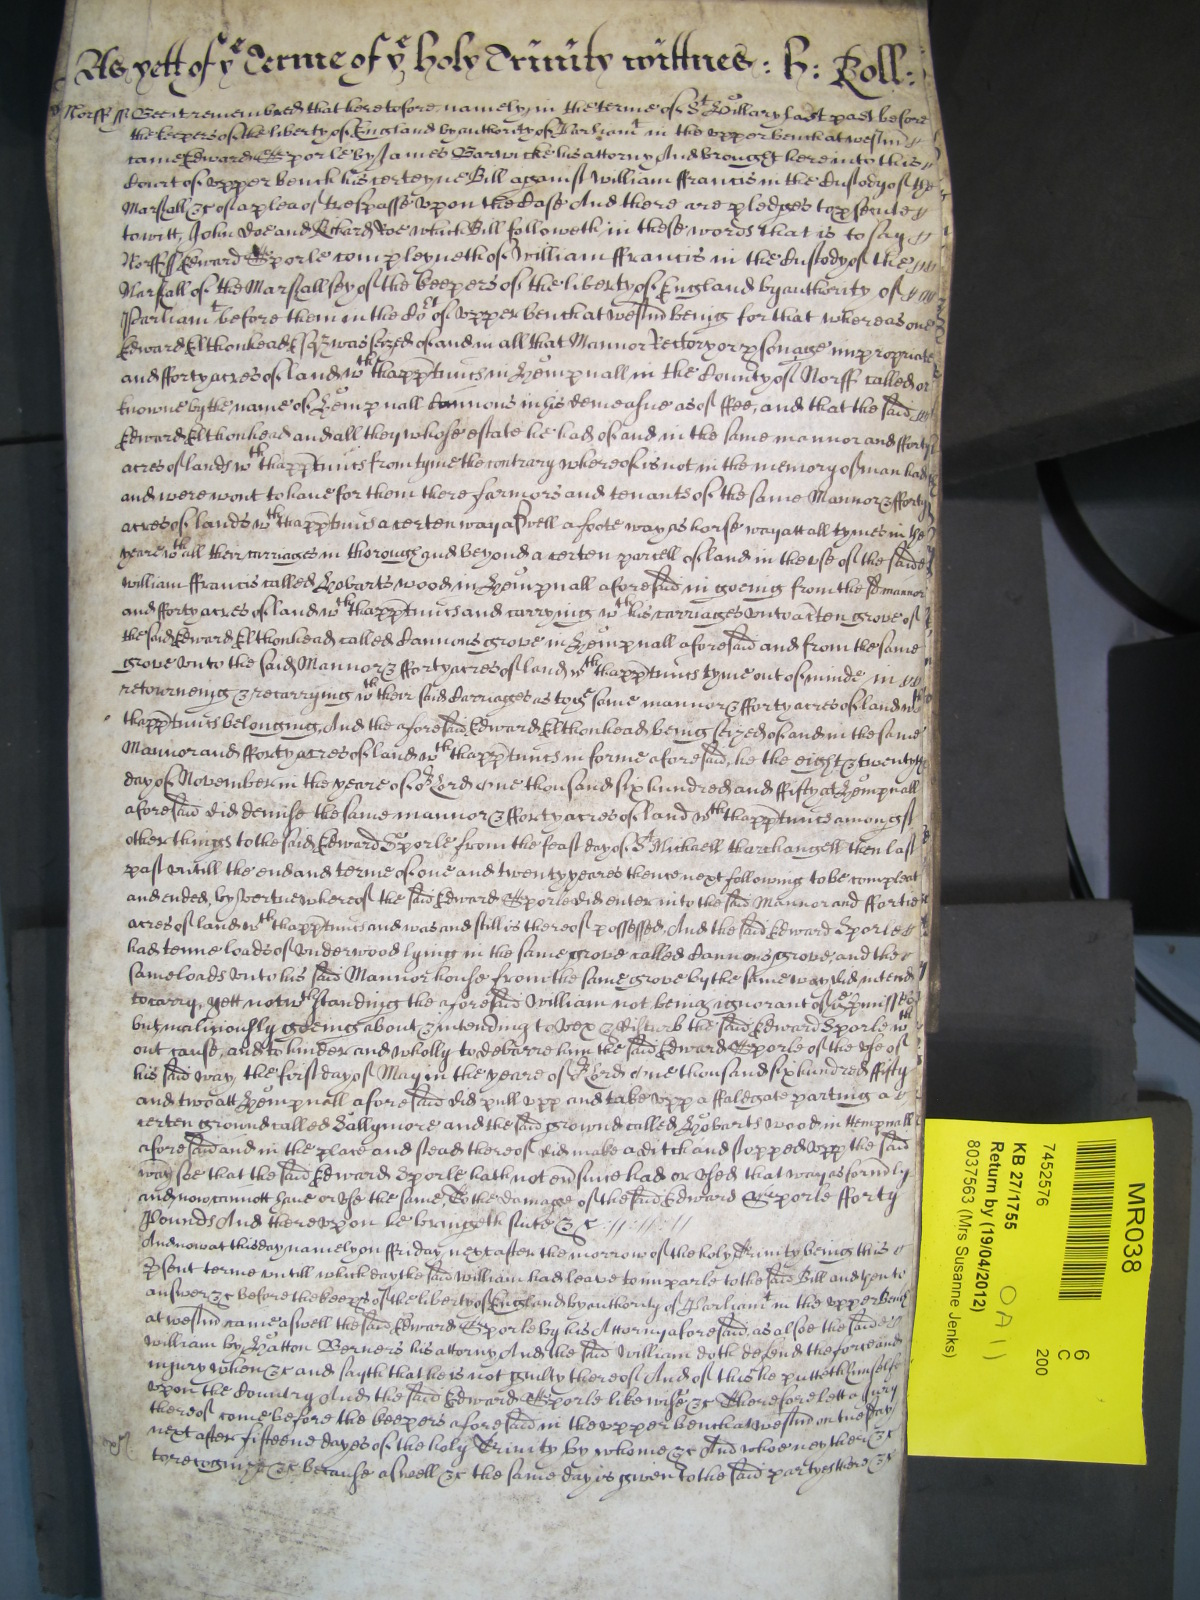 As yett of ye Terme of ye holy Trinity wittnes: H: Rolle:
Norff ss Bee it remembred that heretofore, namely, in the terme of St Hillary last past before
the keepers of the liberty of England by authority of Parliamt in the vpper bench at westmr
came Edward Sporle by James Barwicke his attorny And brought here into this
Court of vpper bench his certeyne Bill against william ffrancis in the Custody of the
Marshall &c of a plea of trespasse vpon the Case And there are pledges to psecute
to witt, John Doe and Richard Roe which Bill followeth in these words that is to say
Norff ss Edward Sporle compleyneth of William ffrancis in the Custody of the
Marshall of the Marshallsey of the keepers of the liberty of England by authority of
Parliamt before them in the Cort of vpper bench at westmr being for that whereas one
Edward Elthonhead Esqr was seized of and in all that Mannor Rectory or psonage impropriate
and fforty acres of land wth thapptnncs in Hempnall in the County of Norff called or
knowne by the name of Hempnall Cannons in his demeasne as of ffee, and that the said
Edward Elthonhead and all they whose estate he had of and in the same mannor and fforty
acres of lands wth thapptnncs from tyme the contrary whereof is not in the memory of man had
and were wont to haue for them there farmors and tenants of the same Mannor & fforty
acres of lands wth thapptnncs a certen way aswell a foote way as horse way att all tymes in the
yeare wth all their carriages in thorough and beyond a certen parcell of land in the vse of the said
William ffrancis called Hobarts wood in Hempnall aforesaid in goeing from the sd mannor
and fforty acres of land wth thapptnncs and carrying wth his carriages vnto a cten grove of
the said Edward Elthonhead called Cannons grove in Hempnall aforesaid and from the same
grove vnto the said Mannor & fforty acres of land wth thapptnncs tyme out of minde in
retourneing & recarrying wth their said Carriages as to ye same mannor & fforty acres of land wth
thapptnncs belonging, And the aforesaid Edward Elthonhead being seized of and in the same
Mannor and fforty acres of land wth thapptnncs in forme aforesaid, he the eight & twentyth
day of November in the yeare of or Lord one thousand six hundred and ffifty at Hempnall
aforesaid did demise the same mannor & fforty acres of land wth thapptnncs amongst
other things to the said Edward Sporle from the feast day of St Michaell tharchangell then last
past vntill the end and terme of one and twenty yeares thence next following to be compleat
and ended, by vertue whereof the said Edward Sporle did enter into the said Mannor and fforty
acres of land wth thapptnncs and was and still is thereof possessed, And the said Edward Sporle
had tenne loads of vnderwood lying in the same grove called Cannons grove, and the
same loads vnto his said Mannor house from the same grove by the same way did intend
to carry, yett notwthstanding the aforesaid William not being ignorant of ye pmisses
but maliciously goeing about & intending to vex & disturb the said Edward Sporle wth
out cause, and to hinder and wholly to debarre him the said Edward Sporle of the vse of
his said way the first day of May in the yeare of or Lord one thousand six hundred ffifty
and two att Hempnall aforesaid did pull vpp and take vpp a ffaldgate parting a
certen ground called Ballymore and the said ground called Hobarts wood in Hempnall
aforesaid and in the place and stead thereof did make a ditch and stopped vpp the said
way soe that the said Edward Sporle hath not eur since had or vsed that way as formrly
and now cannott haue or vse the same, To the damage of the said Edward Sporle fforty
Pounds And therevpon he bringeth suite &c
And now at this day namely on ffriday next after the morrow of the holy Trinity being this
psent terme vntill which day the said william had leave to imparle to the said Bill and then to
answer &c before the keeps of the liberty of England by authority of Parliamt in the vpper Bench
at westmr came aswell the said Edward Sporle by his Attorny aforesaid, as alsoe the said
William by Hatton Berners his attorny And the said William doth defend the force and
iniury when &c and sayth that he is not guilty thereof And of this he putteth himselfe
vpon the Country And the said Edward Sporle likewise &c Therefore lett a Jury
thereof come before the keepers aforesaid in the vpper bench at westmr on tuesday
next after fifteene dayes of the holy Trinity by whome &c And who neyther &c
to recognize &c because aswell &c the same day is given to the said partyes there &c
MR038
7452576
6
C
200
KB 27/1755
OA 11
Return by (19/04/2012)
8037563 (Mrs Susanne Jenks)